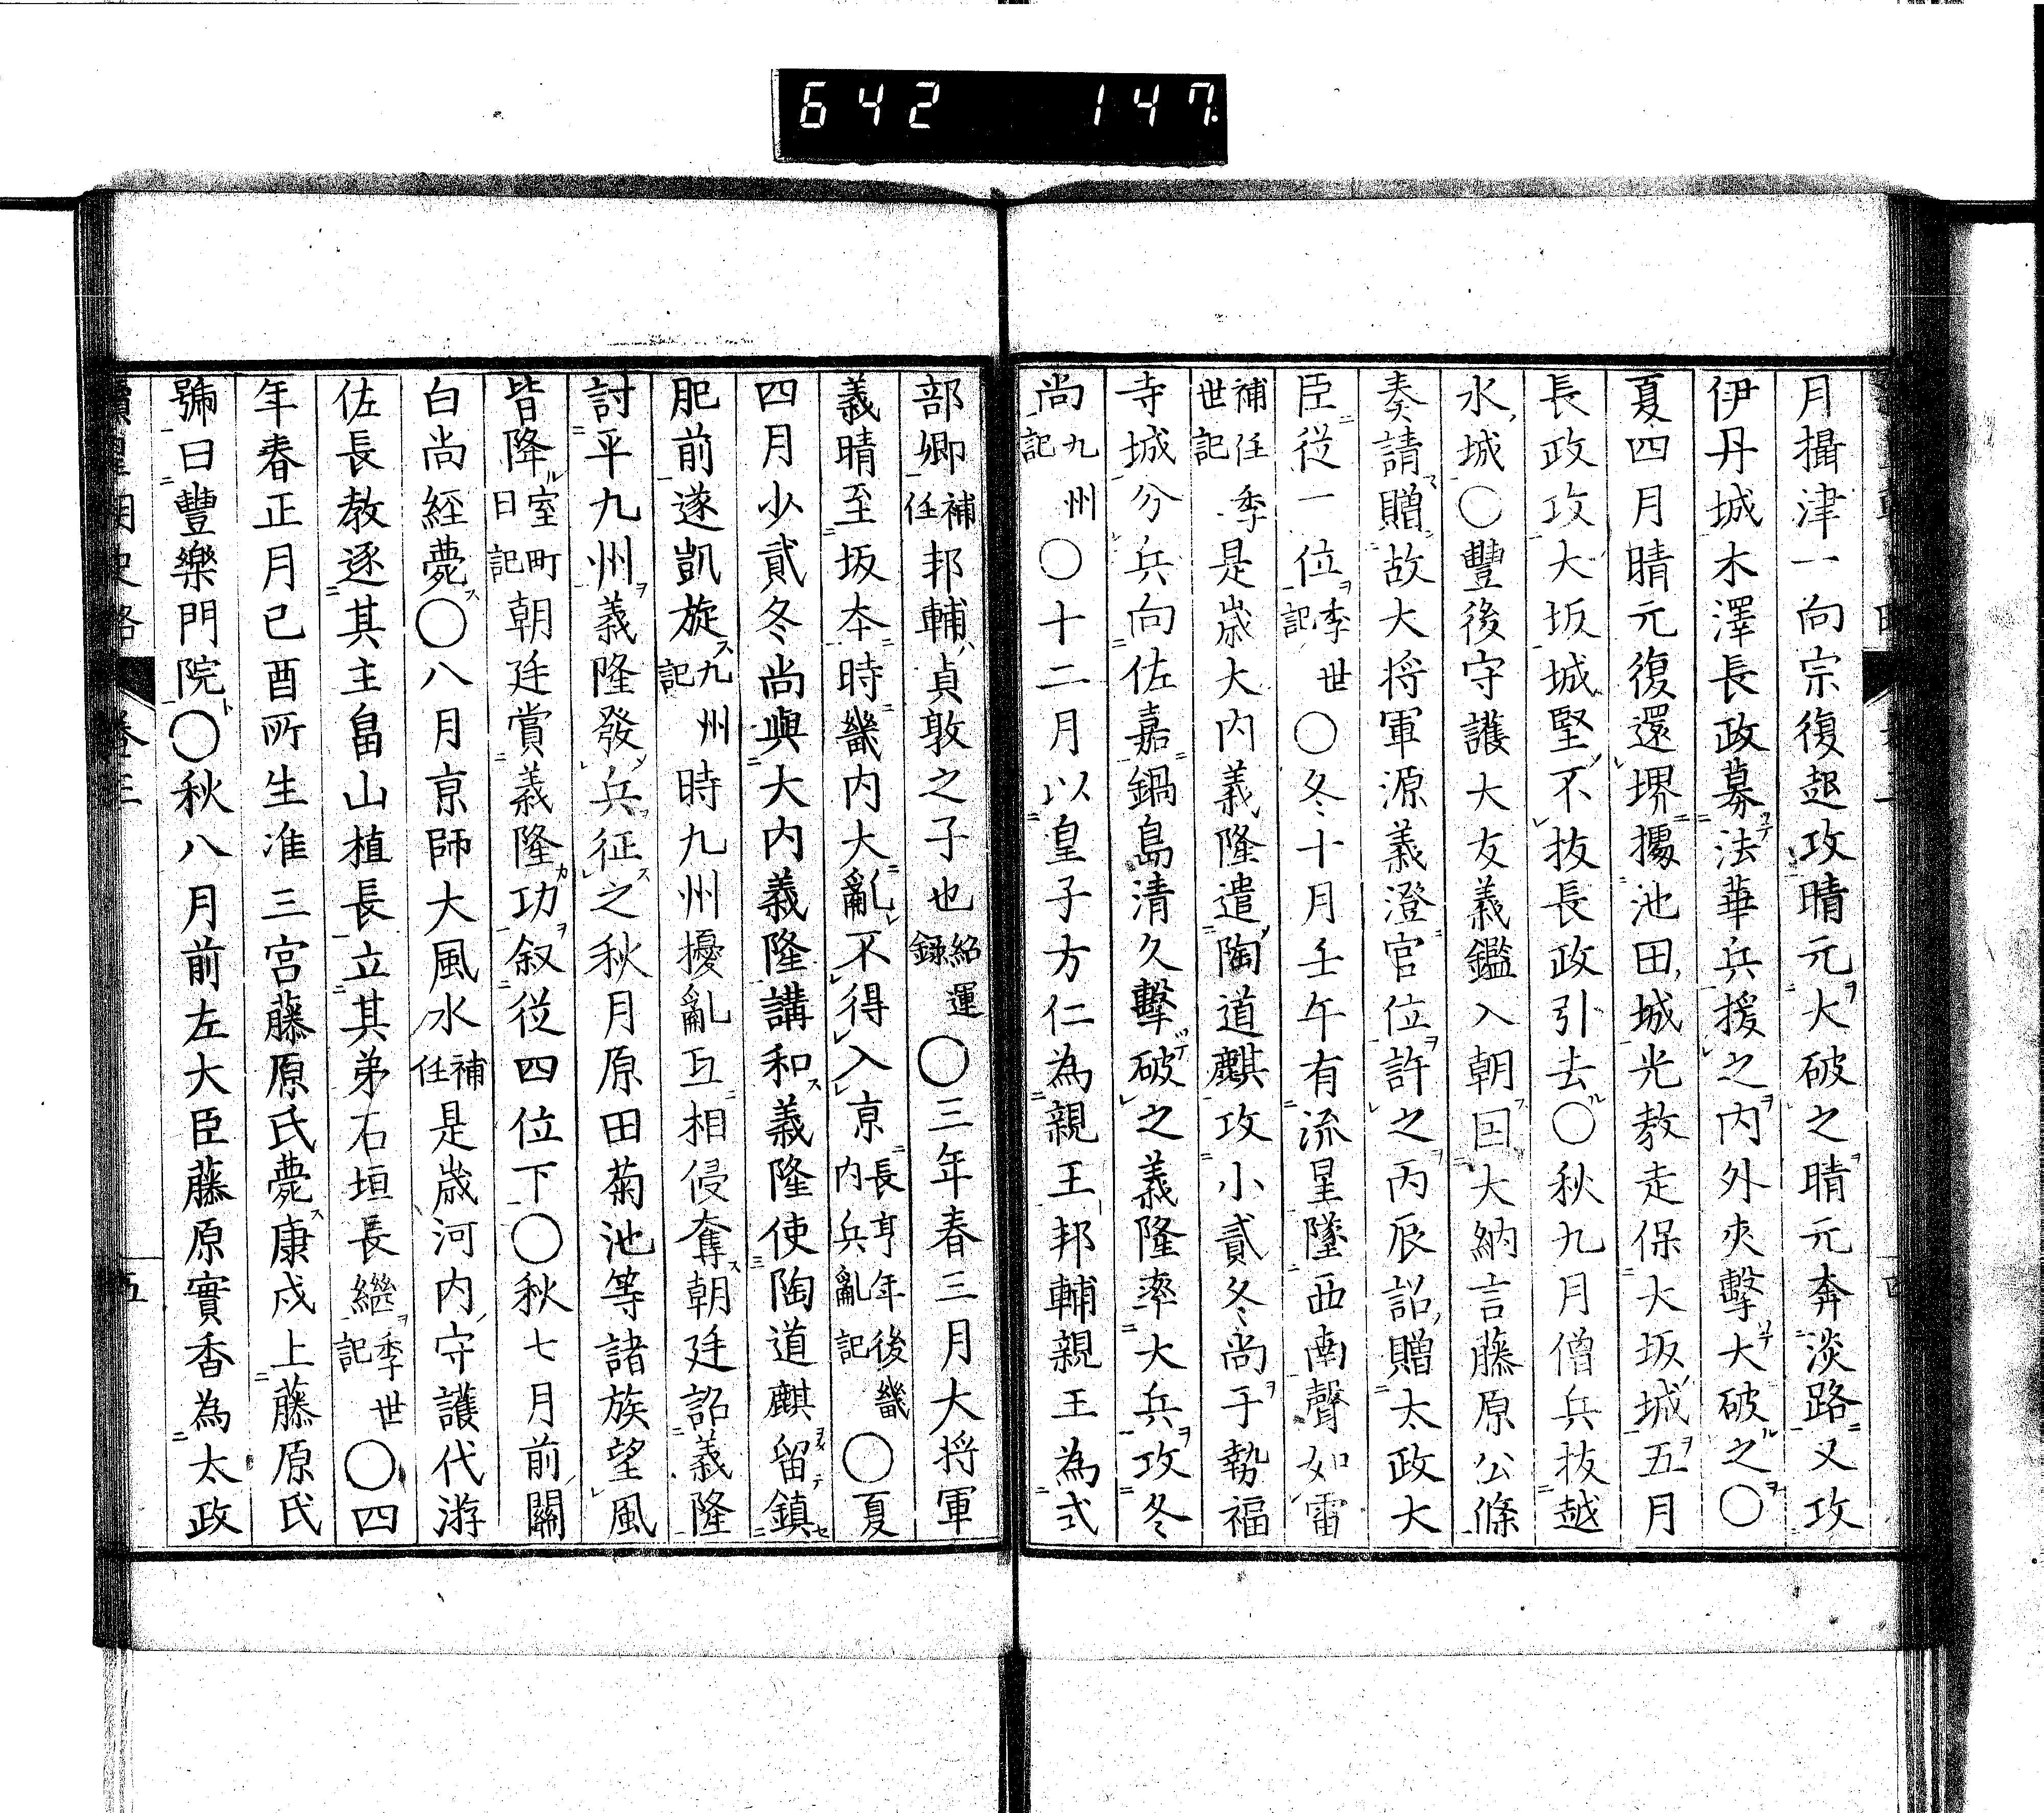 642 147
月攝津一向宗復起攻晴元大破之晴元奔淡路又攻
伊丹城木澤長政募法華兵援之內外夾擊大破之〇
夏四月晴元復還堺據池田城光教走保大坂城五月
長政攻大坂城堅不拔長政引去〇秋九月僧兵拔越
水城〇豐後守護大友義鑑入朝回大納言藤原公條
奏請贈故大将軍源義澄官位許之丙辰詔贈太政大
臣從一位季世記〇冬十月壬午有流星墜西南聲如雷
補任季世記是歲大內義隆遣陶道麒攻小貳冬尚于勢福
寺城分兵向佐嘉鍋島清久擊破之義隆率大兵攻冬
尚九州記〇十二月以皇子方仁為親王邦輔親王為式
部卿補任邦輔貞敦之子也紹運錄〇三年春三月大将軍
義晴至坂本時畿內大亂不得入京長享年後畿內兵亂記〇夏
四月少貳冬尚與大內義隆講和義隆使陶道麒留鎮
肥前遂凱旋九州記時九州擾亂互相侵奪朝廷詔義隆
討平九州義隆發兵征之秋月原田菊池等諸族望風
皆降室町日記朝廷賞義隆功叙從四位下〇秋七月前關
白尚經薨〇八月京師大風水補任是歲河內守護代游
佐長教逐其主畠山植長立其弟石垣長繼季世記〇四
年春正月己酉所生准三宮藤原氏薨康戍上藤原氏
號曰豐樂門院〇秋八月前左大臣藤原實香為太政